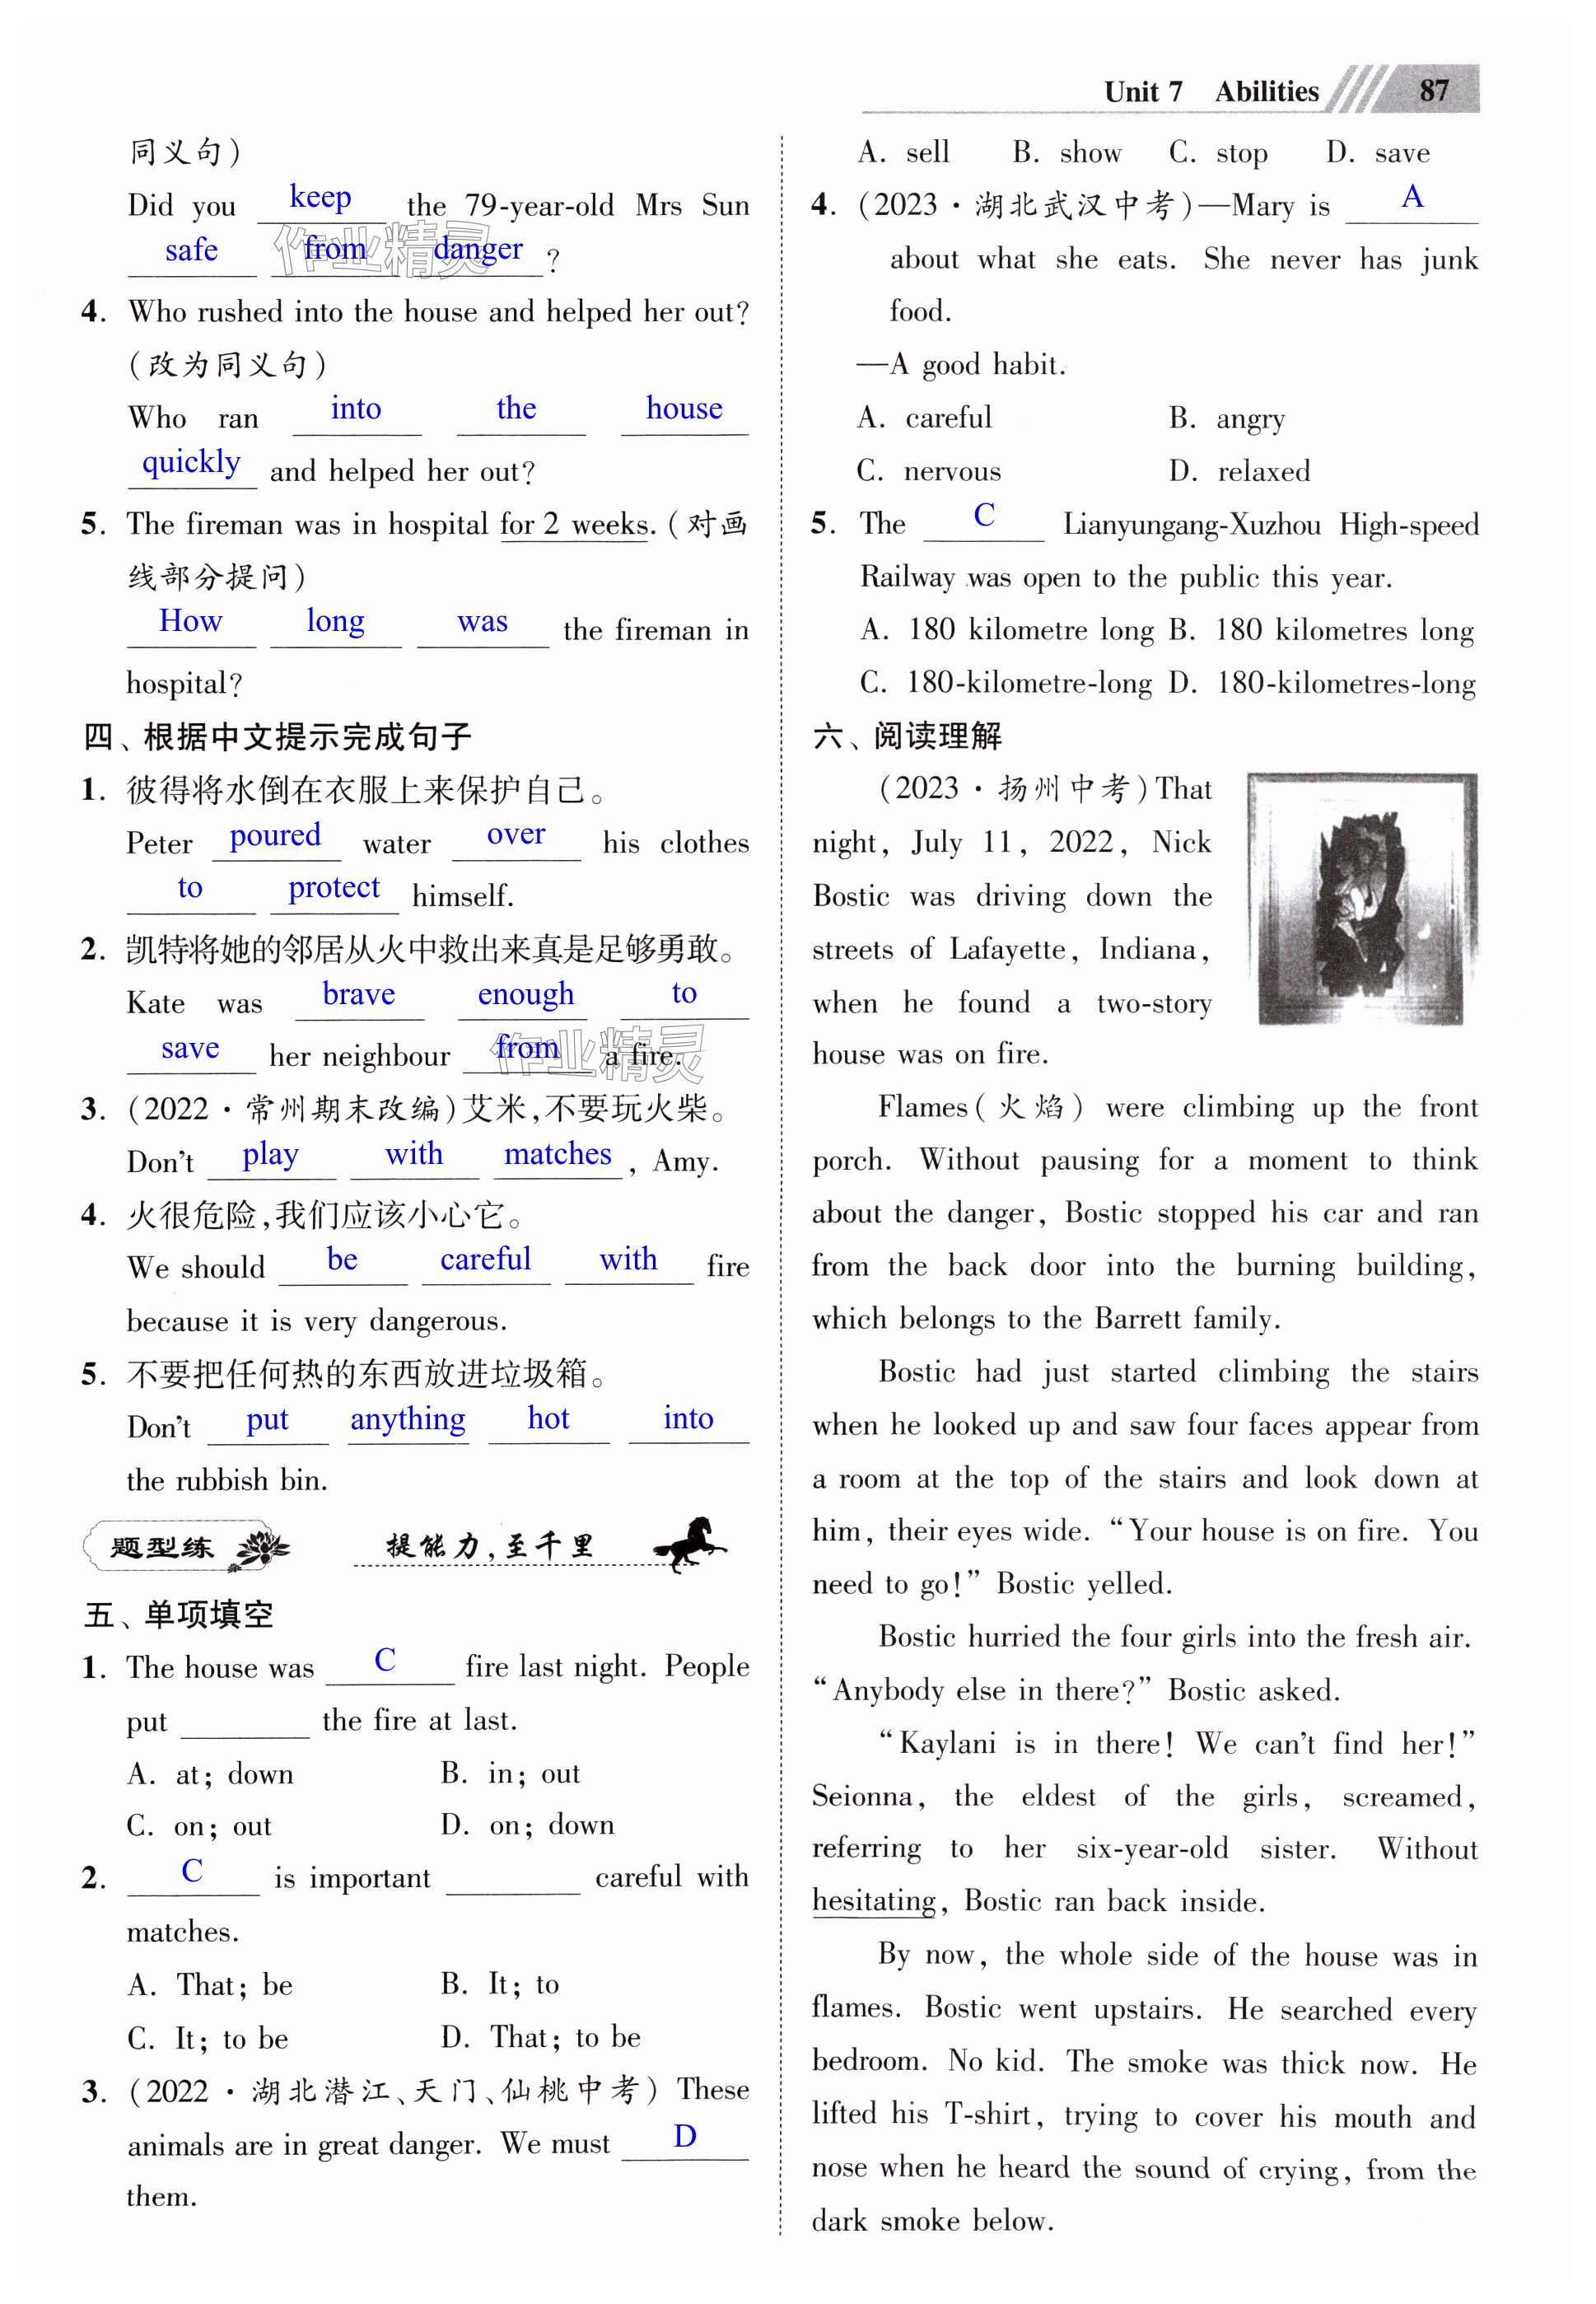 Unit 7 Abilities 87
同义句)
Did you keep the 79-year-old Mrs Sun
safe from danger ?
4. Who rushed into the house and helped her out?
(改为同义句)
Who ran into the house
quickly and helped her out?
5. The fireman was in hospital for 2 weeks. (对画
线部分提问)
How long was the fireman in
hospital?
四、根据中文提示完成句子
1. 彼得将水倒在衣服上来保护自己。
Peter poured water over his clothes
to protect himself.
2. 凯特将她的邻居从火中救出来真是足够勇敢。
Kate was brave enough to
save her neighbour from a fire.
3. (2022·常州期末改编)艾米,不要玩火柴。
Don't play with matches , Amy.
4. 火很危险,我们应该小心它。
We should be careful with fire
because it is very dangerous.
5. 不要把任何热的东西放进垃圾箱。
Don't put anything hot into
the rubbish bin.
题型练 提能力,至千里
五、单项填空
1. The house was C fire last night. People
put ______ the fire at last.
A. at; down B. in; out
C. on; out D. on; down
2. C is important ______ careful with
matches.
A. That; be B. It; to
C. It; to be D. That; to be
3. (2022·湖北潜江、天门、仙桃中考) These
animals are in great danger. We must D
them.
A. sell B. show C. stop D. save
4. (2023·湖北武汉中考)—Mary is A
about what she eats. She never has junk
food.
—A good habit.
A. careful B. angry
C. nervous D. relaxed
5. The C Lianyungang-Xuzhou High-speed
Railway was open to the public this year.
A. 180 kilometre long B. 180 kilometres long
C. 180-kilometre-long D. 180-kilometres-long
六、阅读理解
(2023·扬州中考)That
night, July 11, 2022, Nick
Bostic was driving down the
streets of Lafayette, Indiana,
when he found a two-story
house was on fire.
Flames(火焰) were climbing up the front
porch. Without pausing for a moment to think
about the danger, Bostic stopped his car and ran
from the back door into the burning building,
which belongs to the Barrett family.
Bostic had just started climbing the stairs
when he looked up and saw four faces appear from
a room at the top of the stairs and look down at
him, their eyes wide. “Your house is on fire. You
need to go!” Bostic yelled.
Bostic hurried the four girls into the fresh air.
“Anybody else in there?” Bostic asked.
“Kaylani is in there! We can't find her!”
Seionna, the eldest of the girls, screamed,
referring to her six-year-old sister. Without
hesitating, Bostic ran back inside.
By now, the whole side of the house was in
flames. Bostic went upstairs. He searched every
bedroom. No kid. The smoke was thick now. He
lifted his T-shirt, trying to cover his mouth and
nose when he heard the sound of crying, from the
dark smoke below.
作业精灵
作业精灵